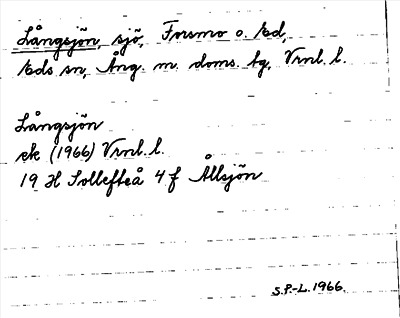 Långsjön, sjö, Forsmo o. Ed,
Eds sn, Ång. m. doms. tg, Vrnl. l.
Långsjön
ek (1966) Vrnl. l.
19 H Sollefteå 4 f Ållsjön
S.P.-L. 1966.